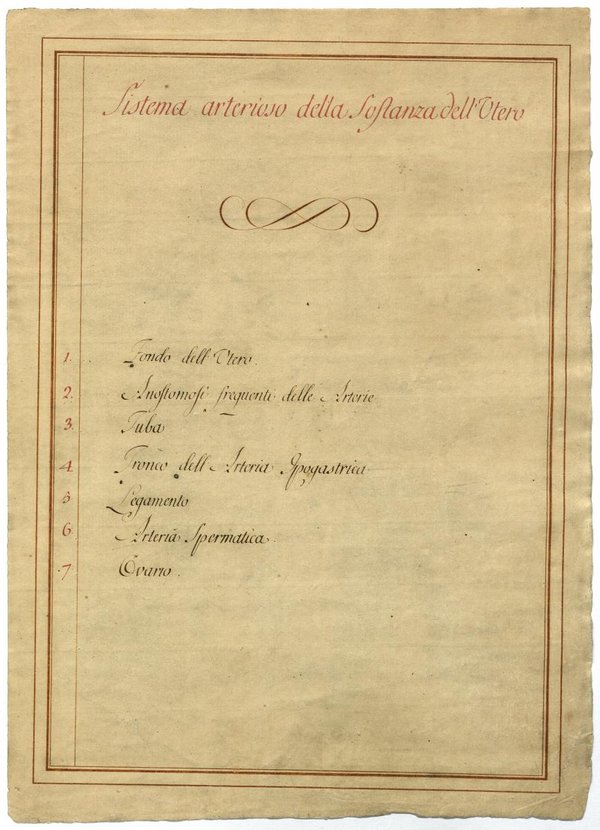 Sistema arterioso della Sostanza dell'Utero
1. Fondo dell'Utero.
2. Anostomosi frequenti delle Arterie
3. Tuba
4. Tronco dell'Arteria Ipogastrica
5 Legamento
6. Arteria Spermatica.
7. Ovario.